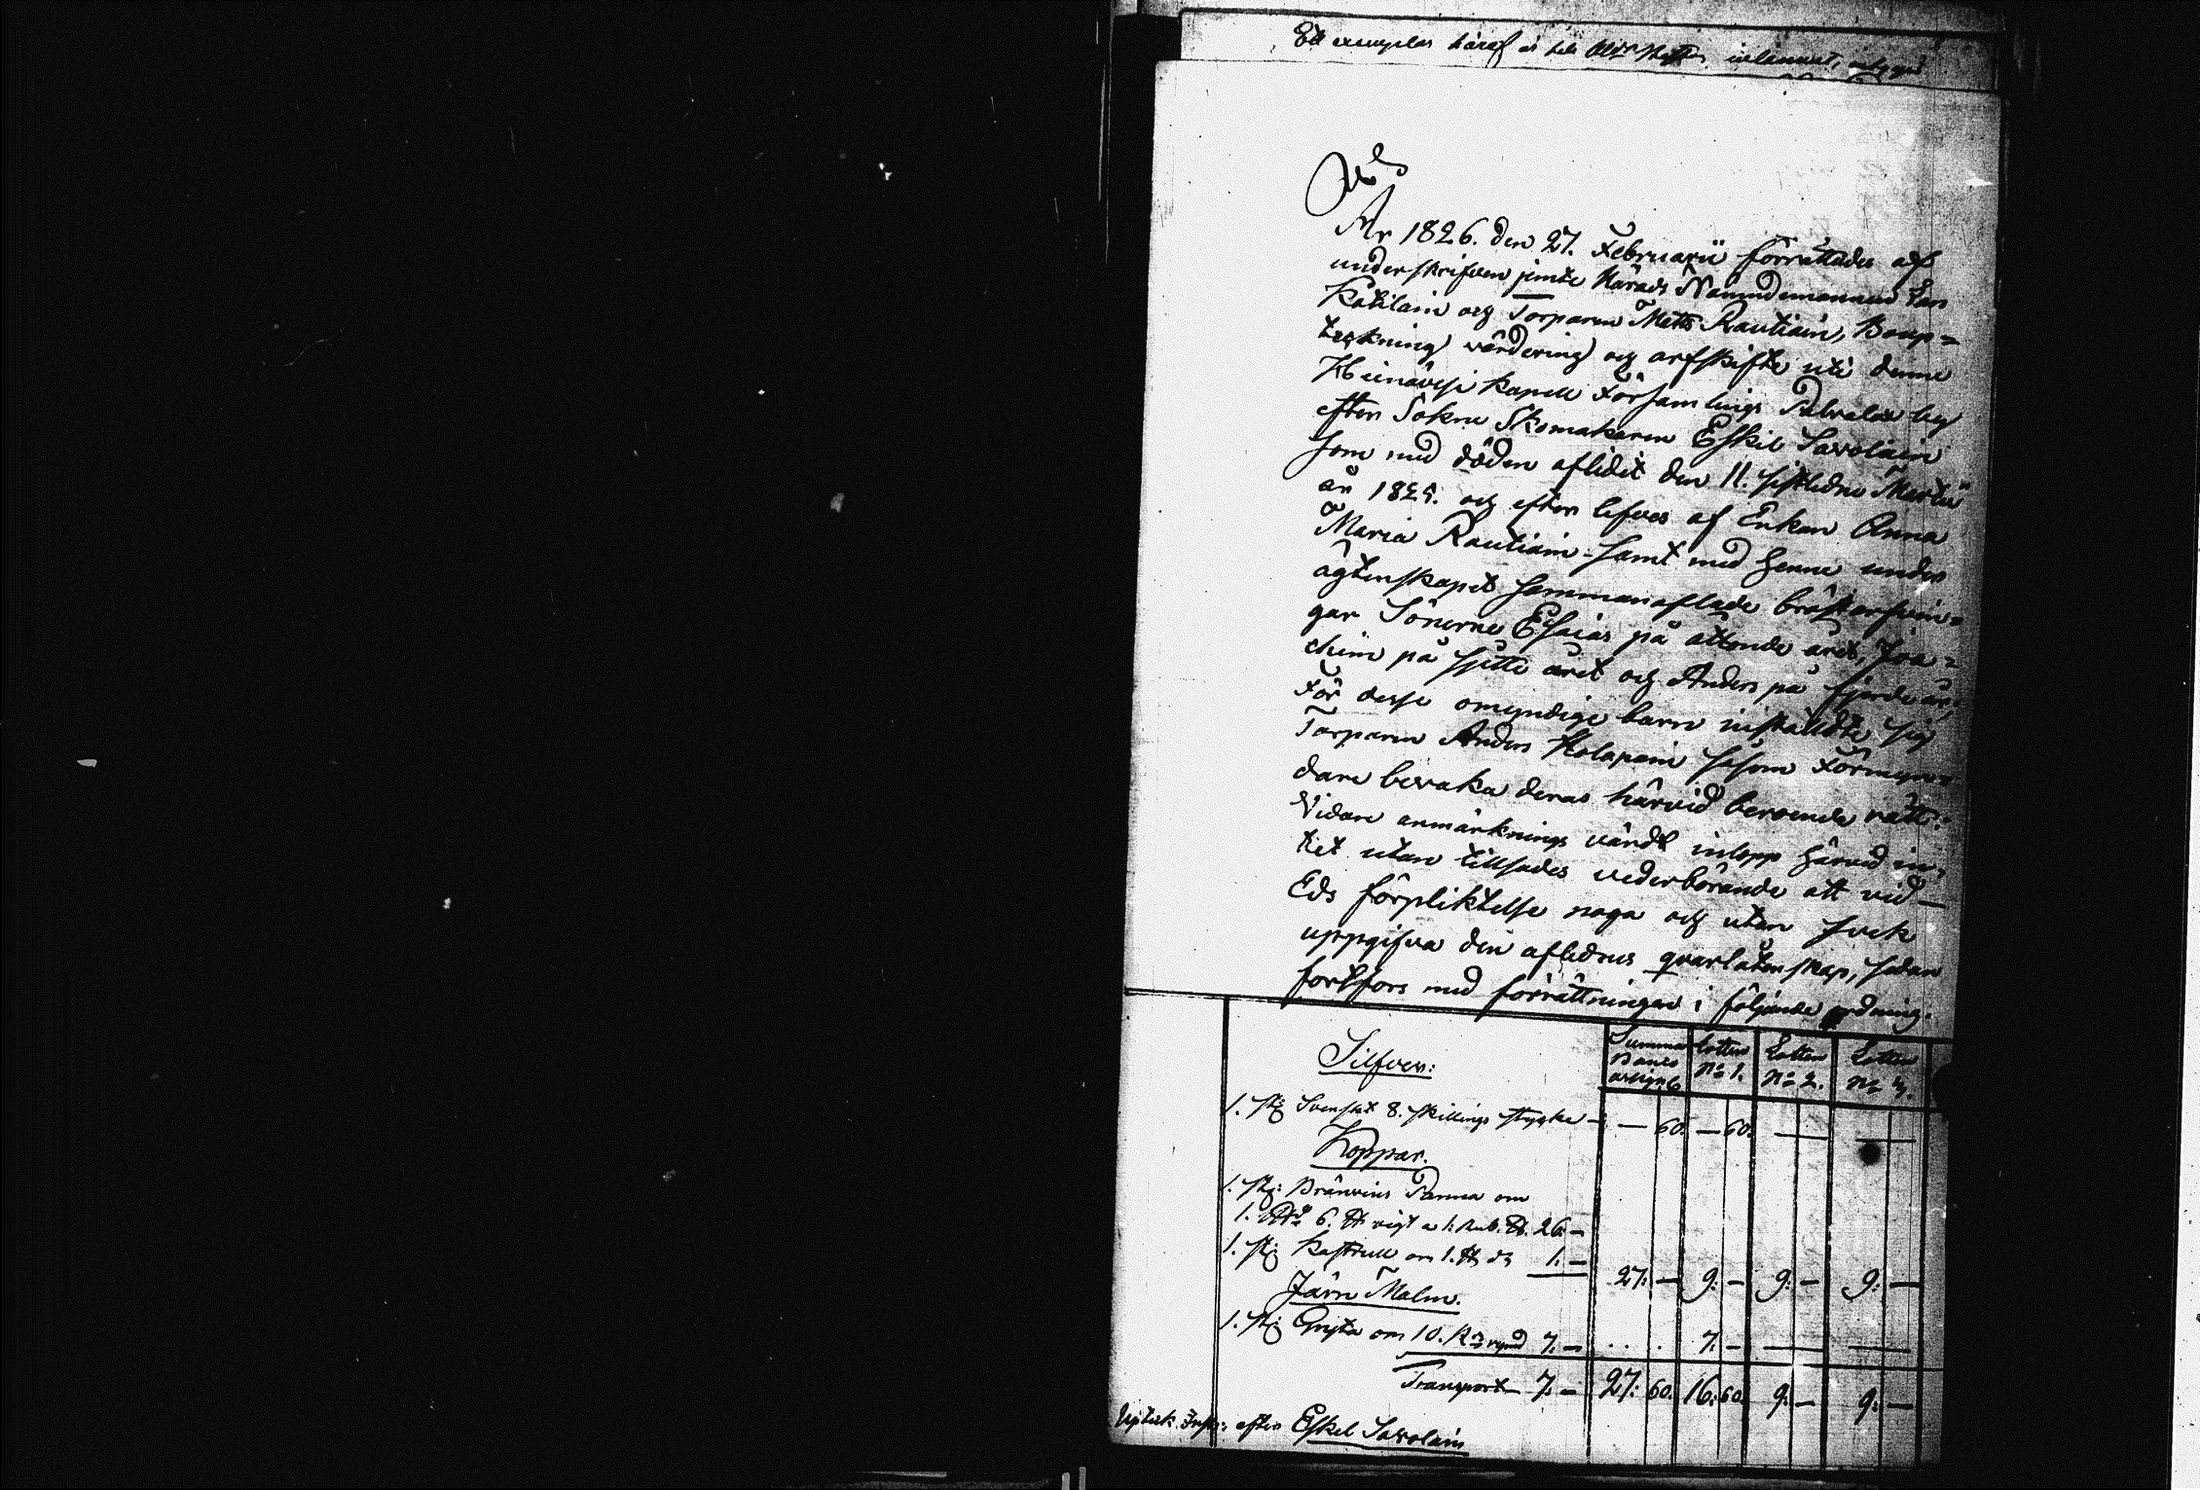 Ett exemplar häraf är till inlämnat, intygar
År 1826. den 27. Februarii förrättades af
underskrifven jemte Härads Nämndemannen Lars
Katilain och Torparen Matts Rautiain, Boup=
tekning värdering och arfskifte uti denne
Heinävesi Kapell Församlings Palvalax by
efter Sokne Skomakaren Eskil Savolain
som med döden aflidit den 11. sistledne Martii
år 1825. och efter lefves af Enkan Anna
Maria Rautiain samt med henne under
ägtenskapet sammanaflade bröstarfvin=
gar Sönerne Esaias på åttonde året, Joa=
chim på sjette året och Anders på fjerde år,
För desse omyndige barn instälddte sig
Torparen Anders Kolapain såsom Förmyn=
dare bevaka deras härvid beroende rätt:
Vidare anmärknings värdt inlopp härvid in,
tet utan tillsades vederbörande att vid
Eds förpliktelse noga och utan svek
uppgifva den aflidnes qvarlåtenskap, sedan
fortfors med förrättningen i följande ordning.
Silfver: Summa Banco assignt: Lotten No 1. Lotten No 2. Lotten No 3.
1. st: Svenskt 8. skillings stycke — — 60. — 60. — —
Koppar.
1. st: Bränvins Panna om
1. L℔ 6. ℔ vigt a 1. Rub. ℔. 26. —
1. st: Kastrull om 1. ℔ d: 1. — 27: — 9: — 9: — 9: —
Järn Malm.
1. st: Gryta om 10. rymd 7. — . . . 7. — — —
Transport 7. — 27: 60. 16: 60. 9: — 9: —
efter Eskel Savolain